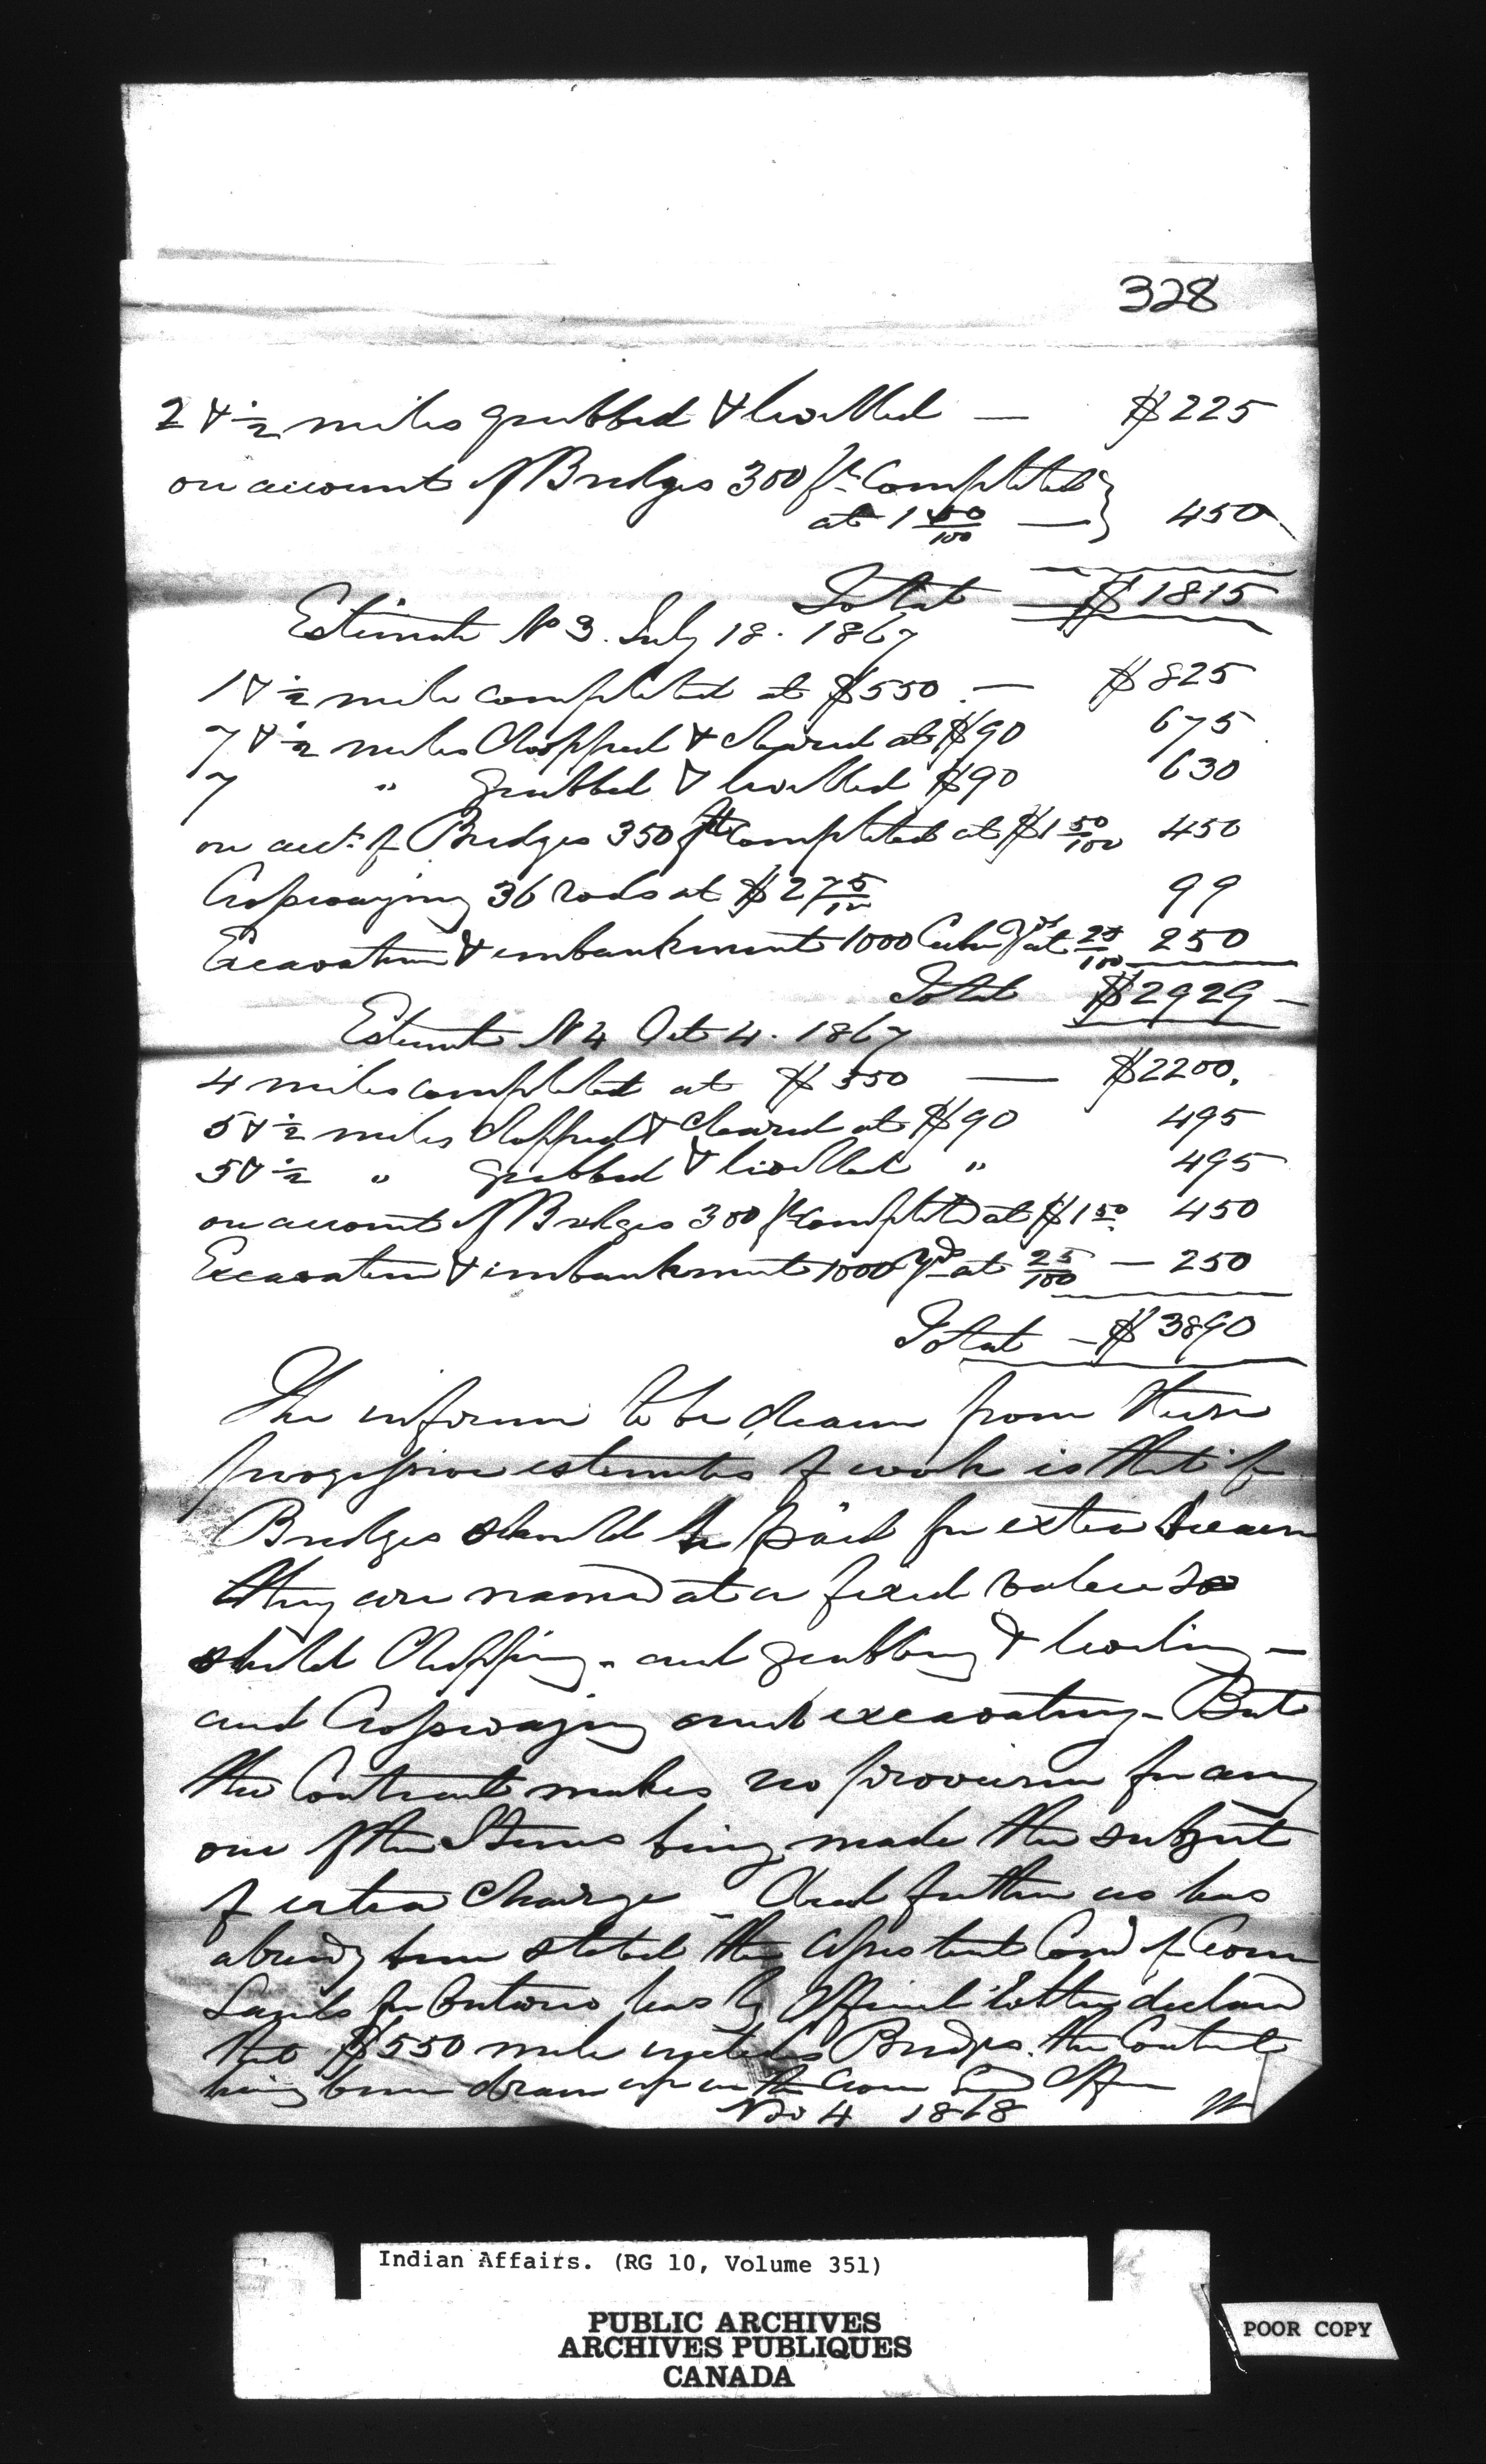 328
2 & 1/2 miles grubbed & levelled — $225
on account of Bridges 300 ft Completed
at 1 50/100 — } 450
Total $1815
Estimate No 3. July 18. 1867
1 & 1/2 mile completed at $550 — $825
7 & 1/2 miles Chopped & cleared at $90 675
7 " grubbed & levelled $90 630
on acct. of Bridges 350 ft Completed at $1 50/100 450
Crosswaying 36 rods at $2 75/100 99
Excavation & embankment 1000 Cubic yds at 25/100 250
Total $2929 —
Estimate N 4 Oct 4. 1867
4 miles completed at $550 — $2200.
5 & 1/2 miles Chopped & Cleared at $90 495
5 & 1/2 " grubbed & levelled " 495
on account of Bridges 300 ft Completed at $1 50 450
Excavation & embankment 1000 yds at 25/100 — 250
Total — $3890
The to be drawn from these
progressive estimates of work is that if
Bridges should be paid for extra because
they are named at a fixed value so
should Chopping - and grubbing & leveling —
and Crosswaying and excavating - But
the Contract makes no provision for any
one of the Items being made the subject
of extra Charge - And further as has
already been stated the Assistant Comd of Crown
Lands for Ontario has by Official letter declared
that $550 mile includes Bridges. the Contract
having been drawn up in the Crown Land Office
Nov 4 1868
Indian Affairs. (RG 10, Volume 351)
PUBLIC ARCHIVES
ARCHIVES PUBLIQUES
CANADA
POOR COPY